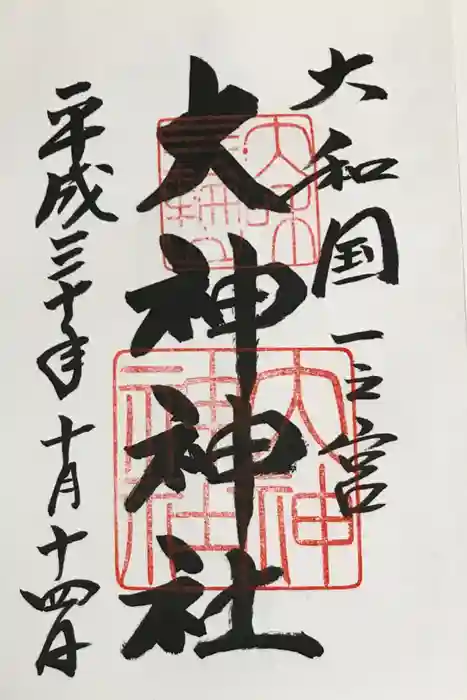 大和国一之宮
大神神社
平成三十年十月十四日
大神
神社